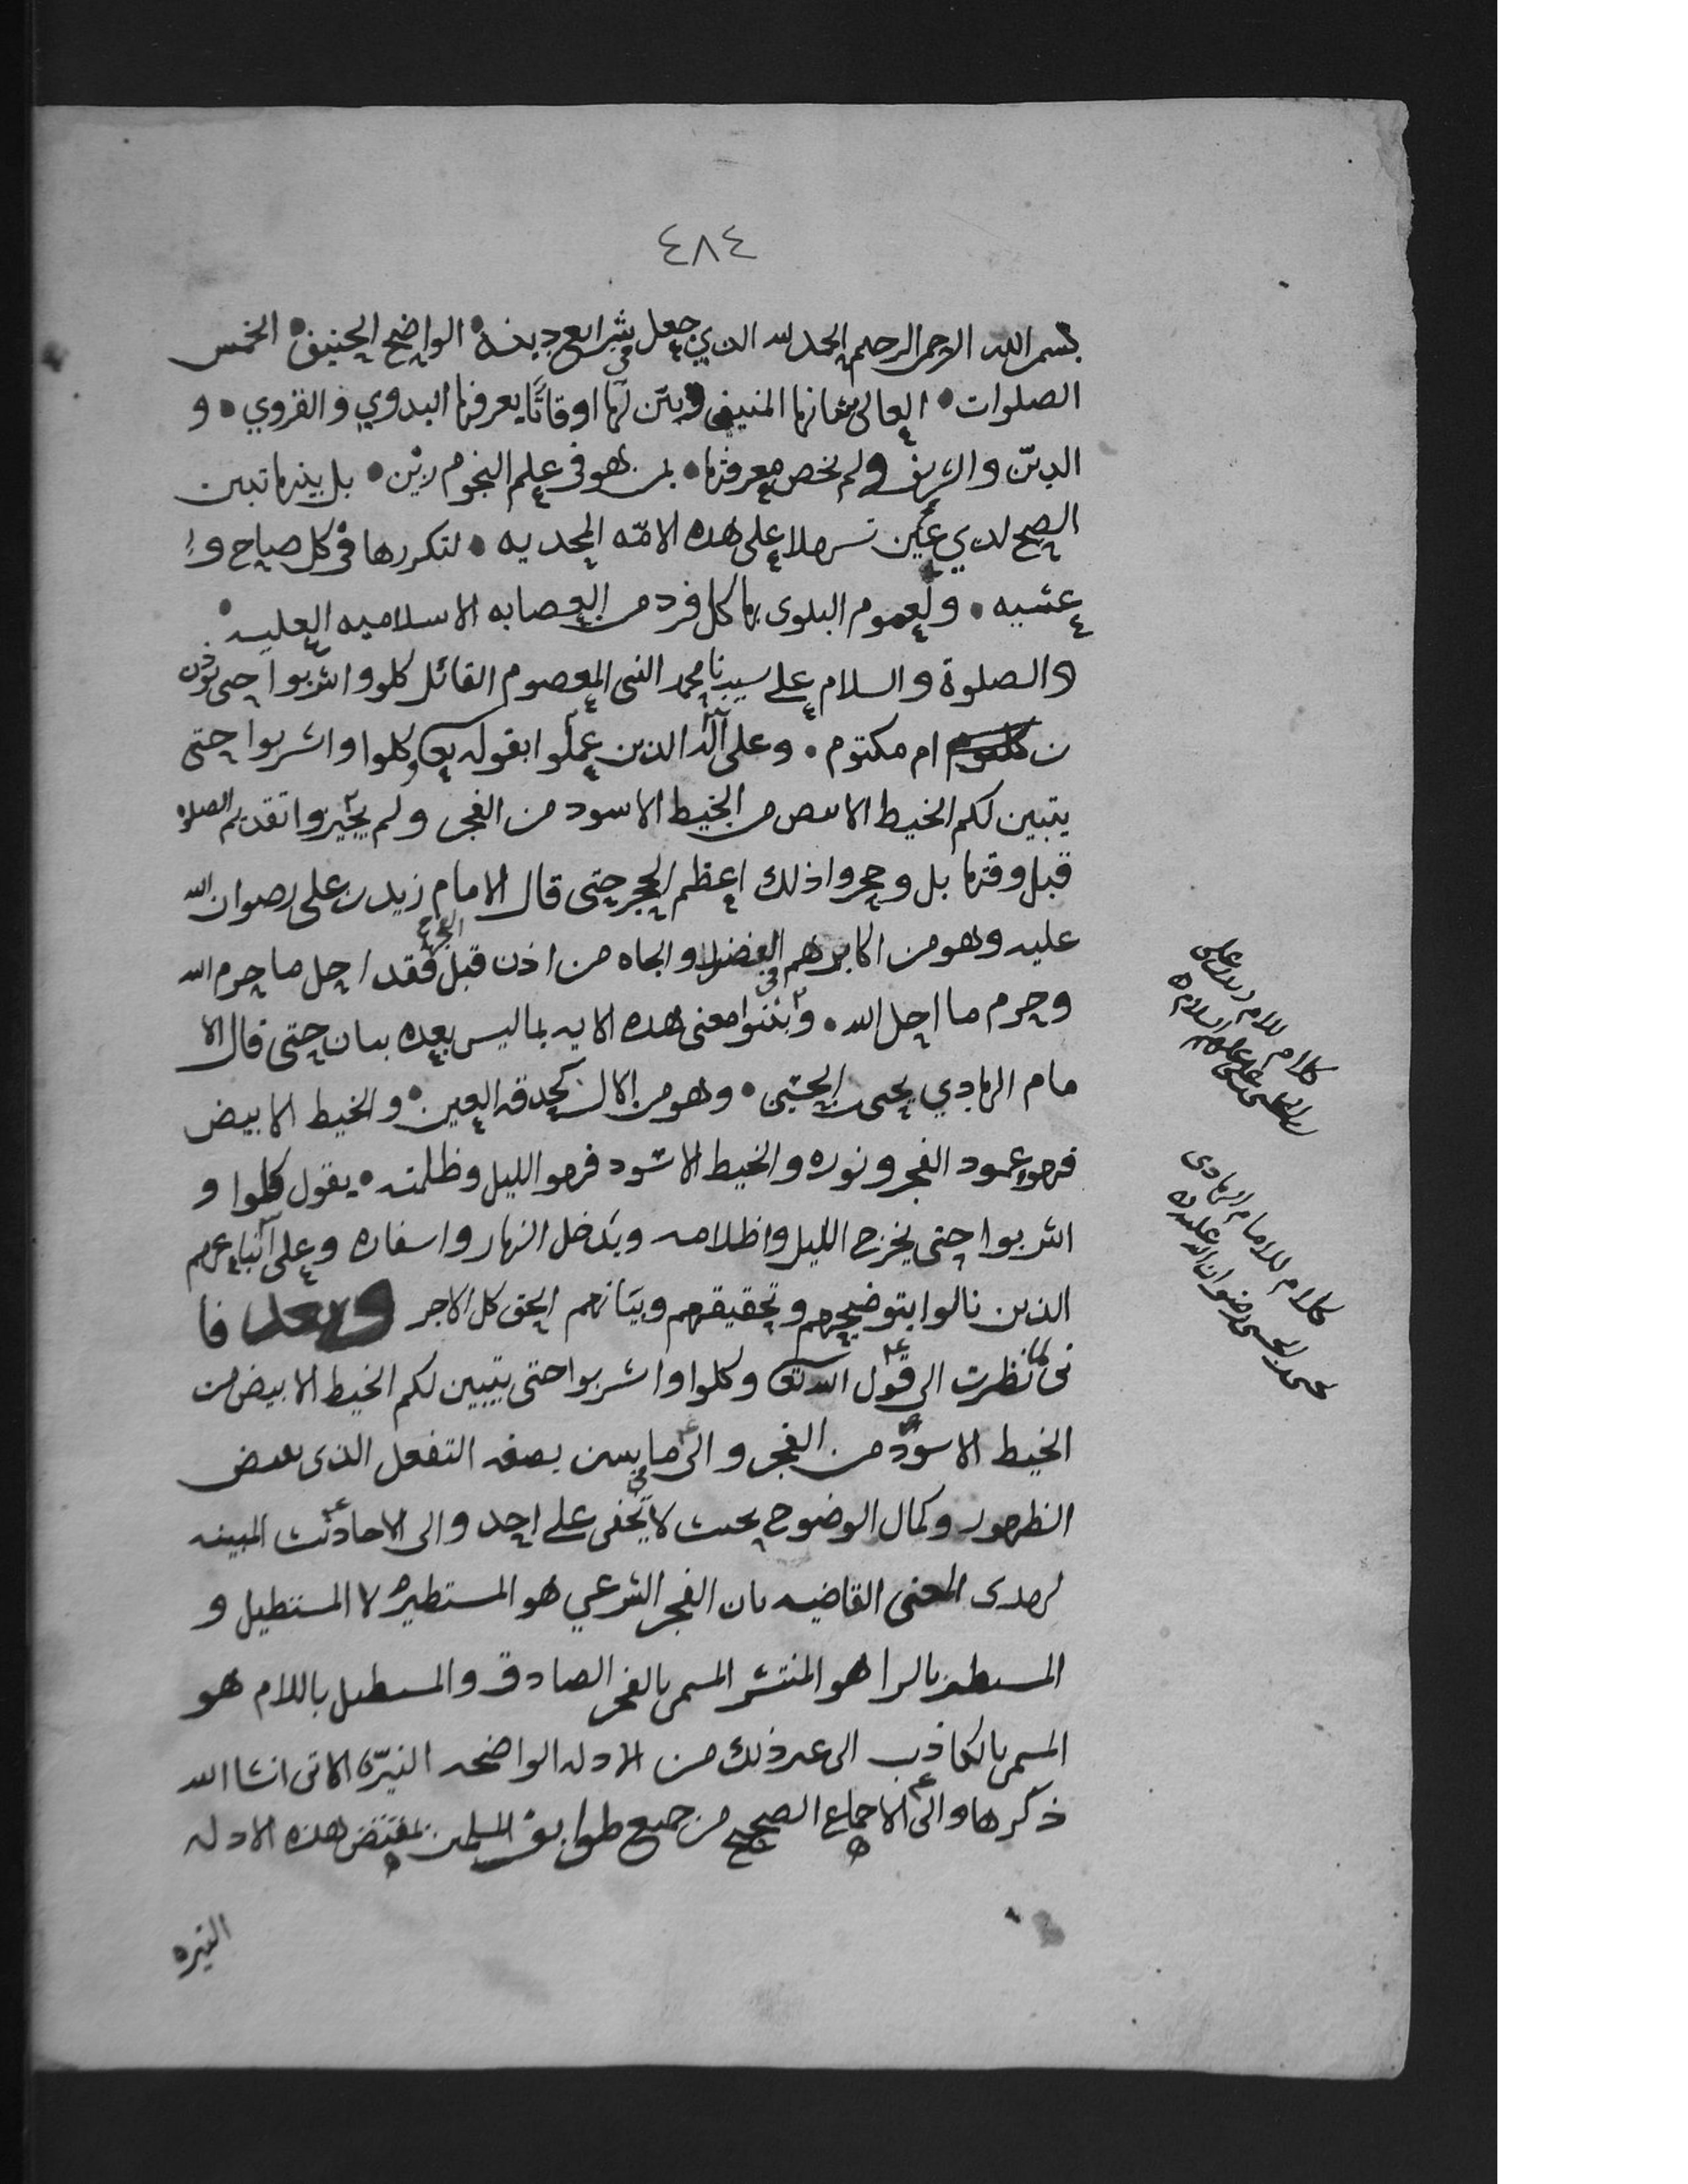 ٤٨٤
بسم الله الرحمن الرحيم الحمد لله الدي جعل في شرايع دينه الواضح الحنيف الخمس
الصلوات العالي شانها المنيف وبيّن لها اوقاتًا يعرفها البدوي والقروي و
الدىّن والشريف ولم يخص معرفتها بمن هو في علم النجوم بل بينها تبين
الصبح لدي عين تسهلا على هذه الامّه المحمديه لتكررها في كل صباح و
عشيه ولعموم البلوى بها كل فرد من العصابه الاسلاميه العليه
والصلوة والسلام على سيدنا محمد النبي المعصوم القائل كلوا واشربوا حتى يوذن
بن ام مكتوم وعلى آله الذين عملوا بقوله تعا وكلوا واشربوا حتى
يتبين لكم الخيط الابيض من الخيط الاسود من الفجر ولم يخيروا تقديم الصلوه
قبل وقتها بل وحجروا ذلك اعظم الحجر حتى قال الامام زيد بن على رضوان الله
عليه وهو من اكابرهم الفضلا والجاه من اذن قبل الفجر فقد احل ما حرم الله
وحرم ما احل الله وبيّنوا معنى هذه الايه بما ليس بعده بيان حتى قال الا
مام الهادي يحيى بن الحسين وهو من الال كحدقه العين والخيط الابيض
فهو عمود الفجر ونوره والخيط الاسود فهو الليل وظلمته يقول كلوا و
اشربوا حتى يخرج الليل واظلامه ويدخل النهار واسفاره وعلى اتباعهم
الذين نالوا بتوضيحهم وتحقيقهم وبيانهم الحق كل الاجر وبعد فا
نى لما نظرت الى قول الله تعا وكلوا واشربوا حتى يتبين لكم الخيط الابيض من
الخيط الاسود من الفجر والى ما في يتبين بصغه التفعل الذى بعض
الظهور وكمال الوضوح بحيث لا يخفى على احد والى الاحاديث المبينه
لهدى المعنى القاضيه بان الفجر الشرعي هو المستطير لا المستطيل و
المستطير بالرا هو المنتشر المسمى بالفجر الصادق والمستطيل باللام هو
المسمى بالكاذب الى غير ذلك من الادله الواضحه النيّره الاتى انشا الله
ذكرها والى الاجماع الصحيح من جميع طوايف المسلمين بمقتضى هذه الادله
النيره
كلام للامام زيد بن على
كلام للامام الهادى
يحيى بن الحسين رضوان الله عليه